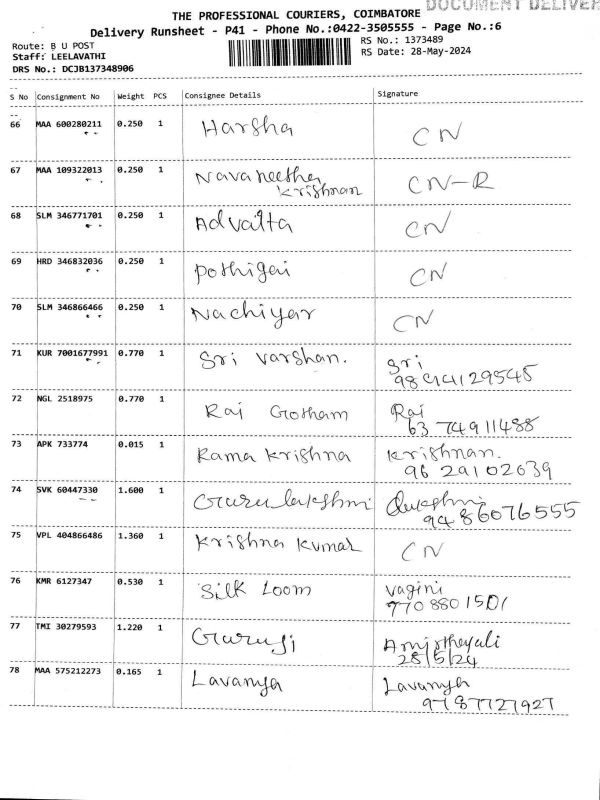 DOCUMENT DELIVER
THE PROFESSIONAL COURIERS, COIMBATORE
Delivery Runsheet - P41 - Phone No.:0422-3505555 - Page No.:6
Route: B U POST
RS No.: 1373489
Staff: LEELAVATHI
RS Date: 28-May-2024
DRS No.: DCJB137348906
S No Consignment No Weight PCS Consignee Details Signature
66 MAA 600280211 0.250 1 Harsha CN
67 MAA 109322013 0.250 1 Navaneetha CN-R
Krishnan
68 SLM 346771701 0.250 1 Advaita CN
69 HRD 346832036 0.250 1 Pothigai CN
70 SLM 346866466 0.250 1 Nachiyar CN
71 KUR 7001677991 0.770 1 Sri Varshan. Sri
72 NGL 2518975 0.770 1 Raj Gotham Raj
63 74911488
73 APK 733774 0.015 1 Rama Krishna Krishnan.
96 29102639
74 SVK 60447330 1.600 1 Gurulakshmi
94 86076555
75 VPL 404866486 1.360 1 Krishna Kumar CN
76 KMR 6127347 0.530 1 Silk Loom Vagini
770 880 1501
77 TMI 30279593 1.220 1 Guruji
28/5/24
78 MAA 575212273 0.165 1 Lavanya Lavanya
9787727927